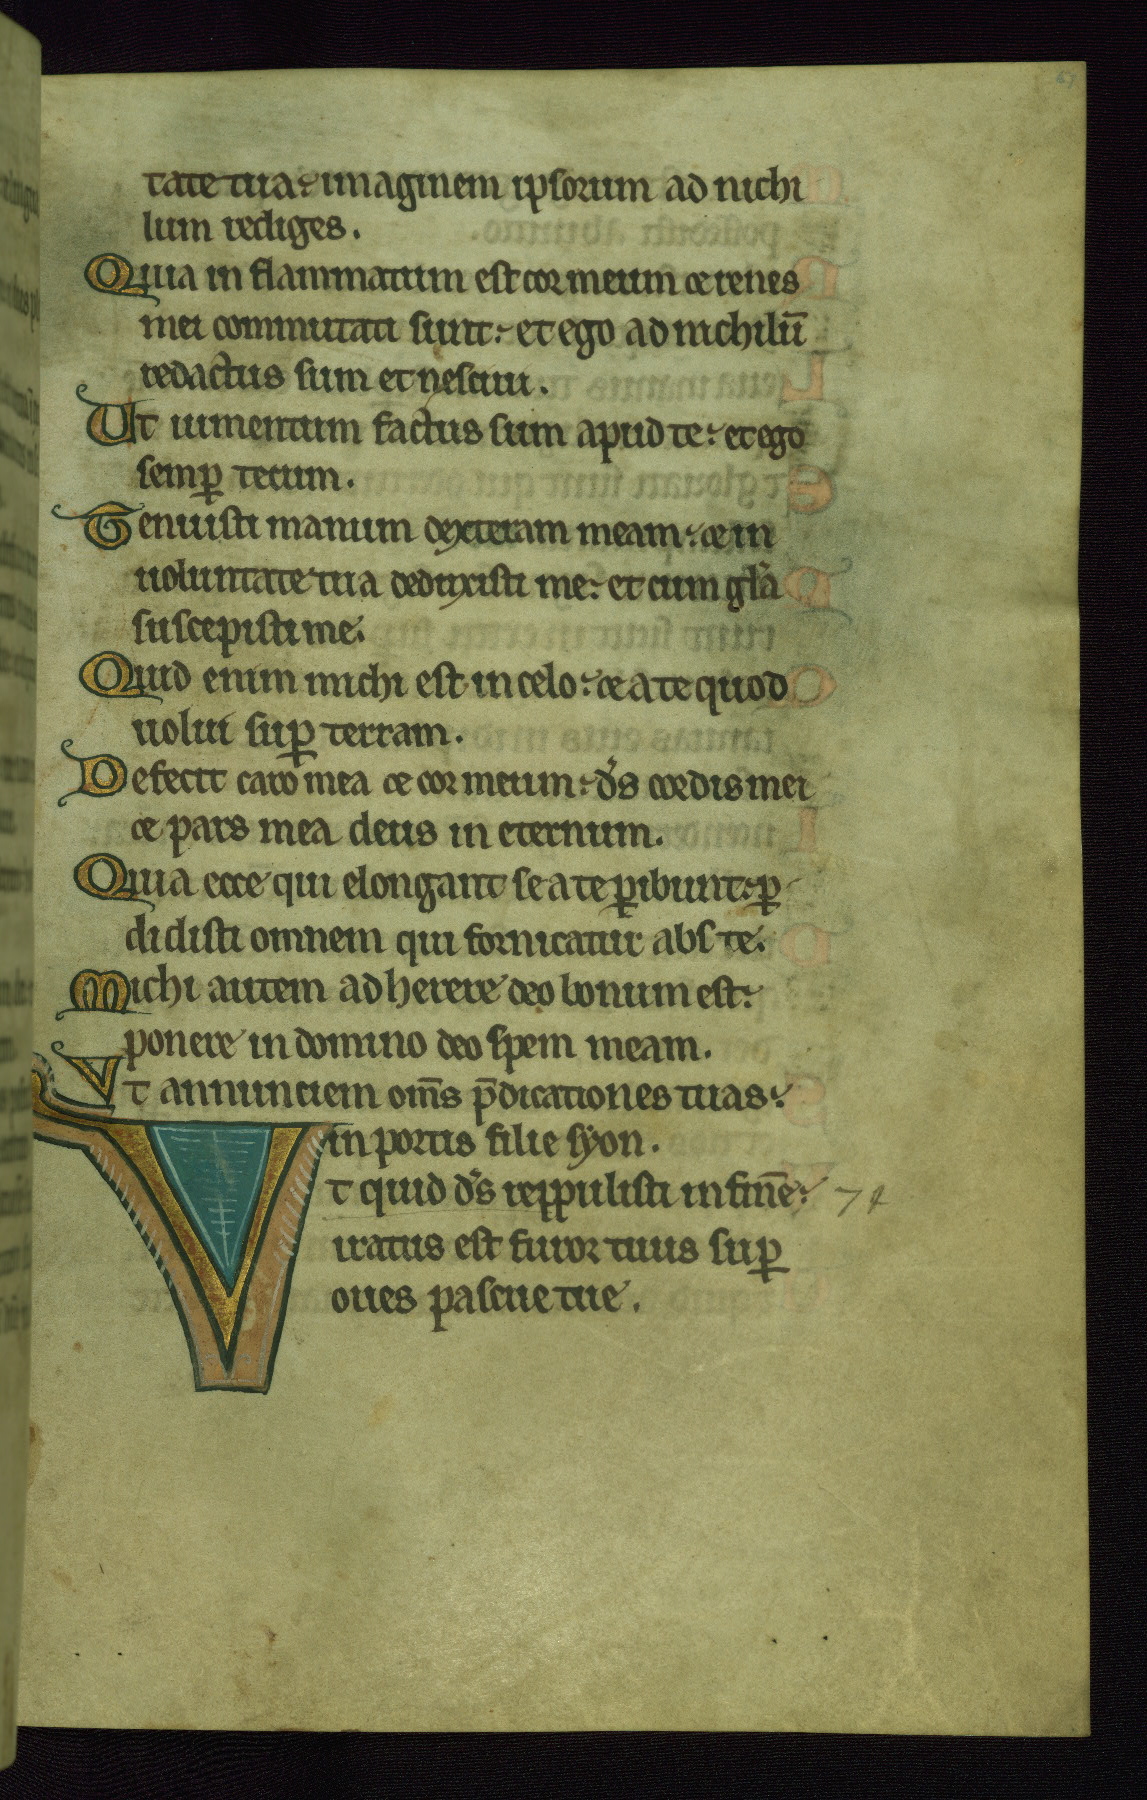 tate tua: imaginem ipsorum ad nichi
lum rediges.
Quia in flammatum est cor meum et renes
mei commutati sunt: et ego ad nichilū
redactus sum et nesciui.
Ut iumentum factus sum apud te: et ego
semꝑ tecum.
Tenuisti manum dexteram meam: et in
uoluntate tua deduxisti me: et cum gl̄a
suscepisti me.
Quid enim michi est in celo: et a te quod
uolui suꝑ terram.
Defecit caro mea et cor meum: d̄s cordis mei
et pars mea deus in eternum.
Quia ecce qui elongant se a te ꝑibunt: ꝑ
didisti omnem qui fornicatur abs te.
Michi autem adherere deo bonum est:
ponere in domino deo spem meam.
Vt annunciem om̄s p̄dicationes tuas:
in portis filie syon.
Vt quid d̄s reppulisti in finē: 74
iratus est furor tuus suꝑ
oues pascue tue.